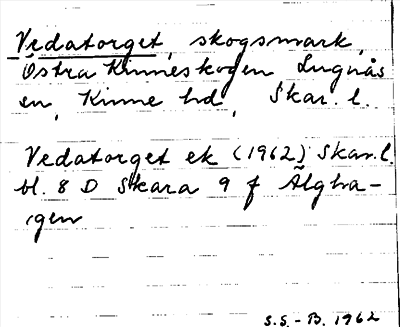 Vedatorget, skogsmark,
Östra Kinneskogen Lugnås
sn, Kinne hd, Skar. l.
Vedatorget ek (1962) Skar. l.
bl. 8 D Skara 9 f Älgha-
gen
S.S.-B. 1962